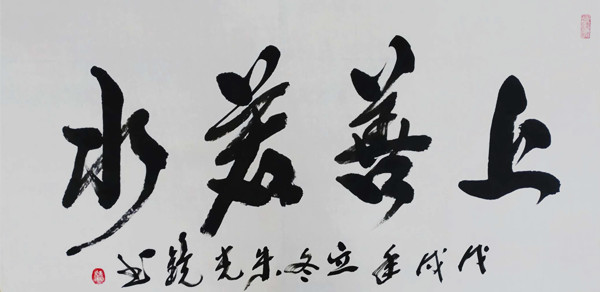 上善若水
戊戌年立冬朱光镜书